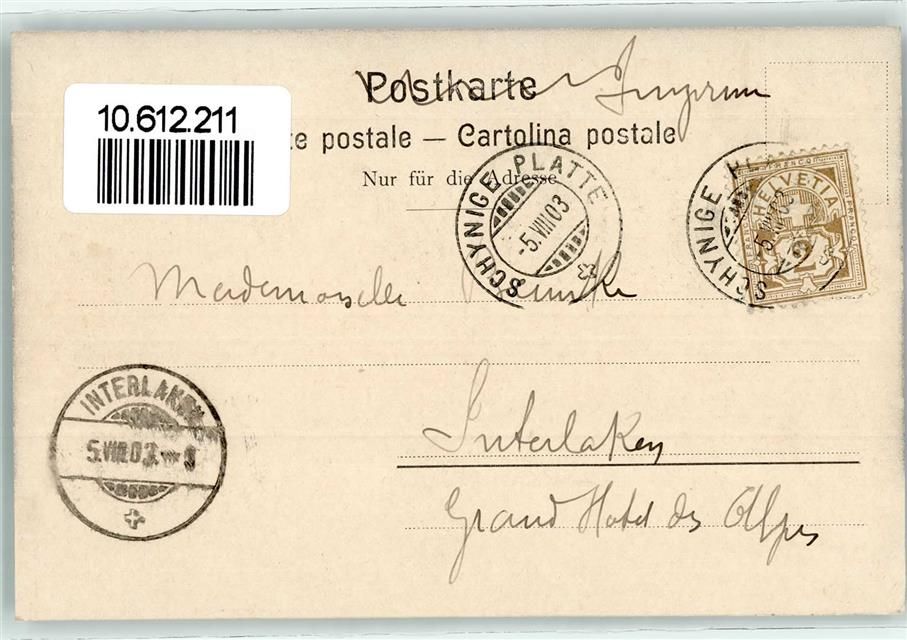 Postkarte
10.612.211
te postale — Cartolina postale
Nur für die Adresse
SCHYNIGE PLATTE
-5.VIII.03
SCHYNIGE
5.VIII.03
FRANCO
HELVETIA
2
Mademoiselle
INTERLAKEN
5.VIII.03.
Interlaken
Grand Hotel des Alpes